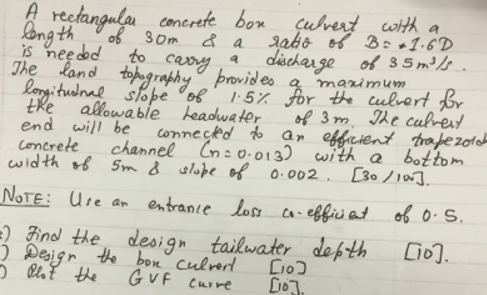 A rectangular concrete box culvert with a
length of 30m & a ratio of B=*1.6D
is needed to carry a discharge of 35m³/s.
The land topography provides a maximum
longitudnal slope of 1.5% for the culvert for
the allowable headwater of 3m. The culvert
end will be connected to an efficient trapezoid
concrete channel (n=0.013) with a bottom
width of 5m & slope of 0.002. [30/100].
NOTE: Use an entrance loss co-efficient of 0.5.
) Find the design tailwater depth [10].
) Design the box culvert [10]
) Plot the GVF curve [10]